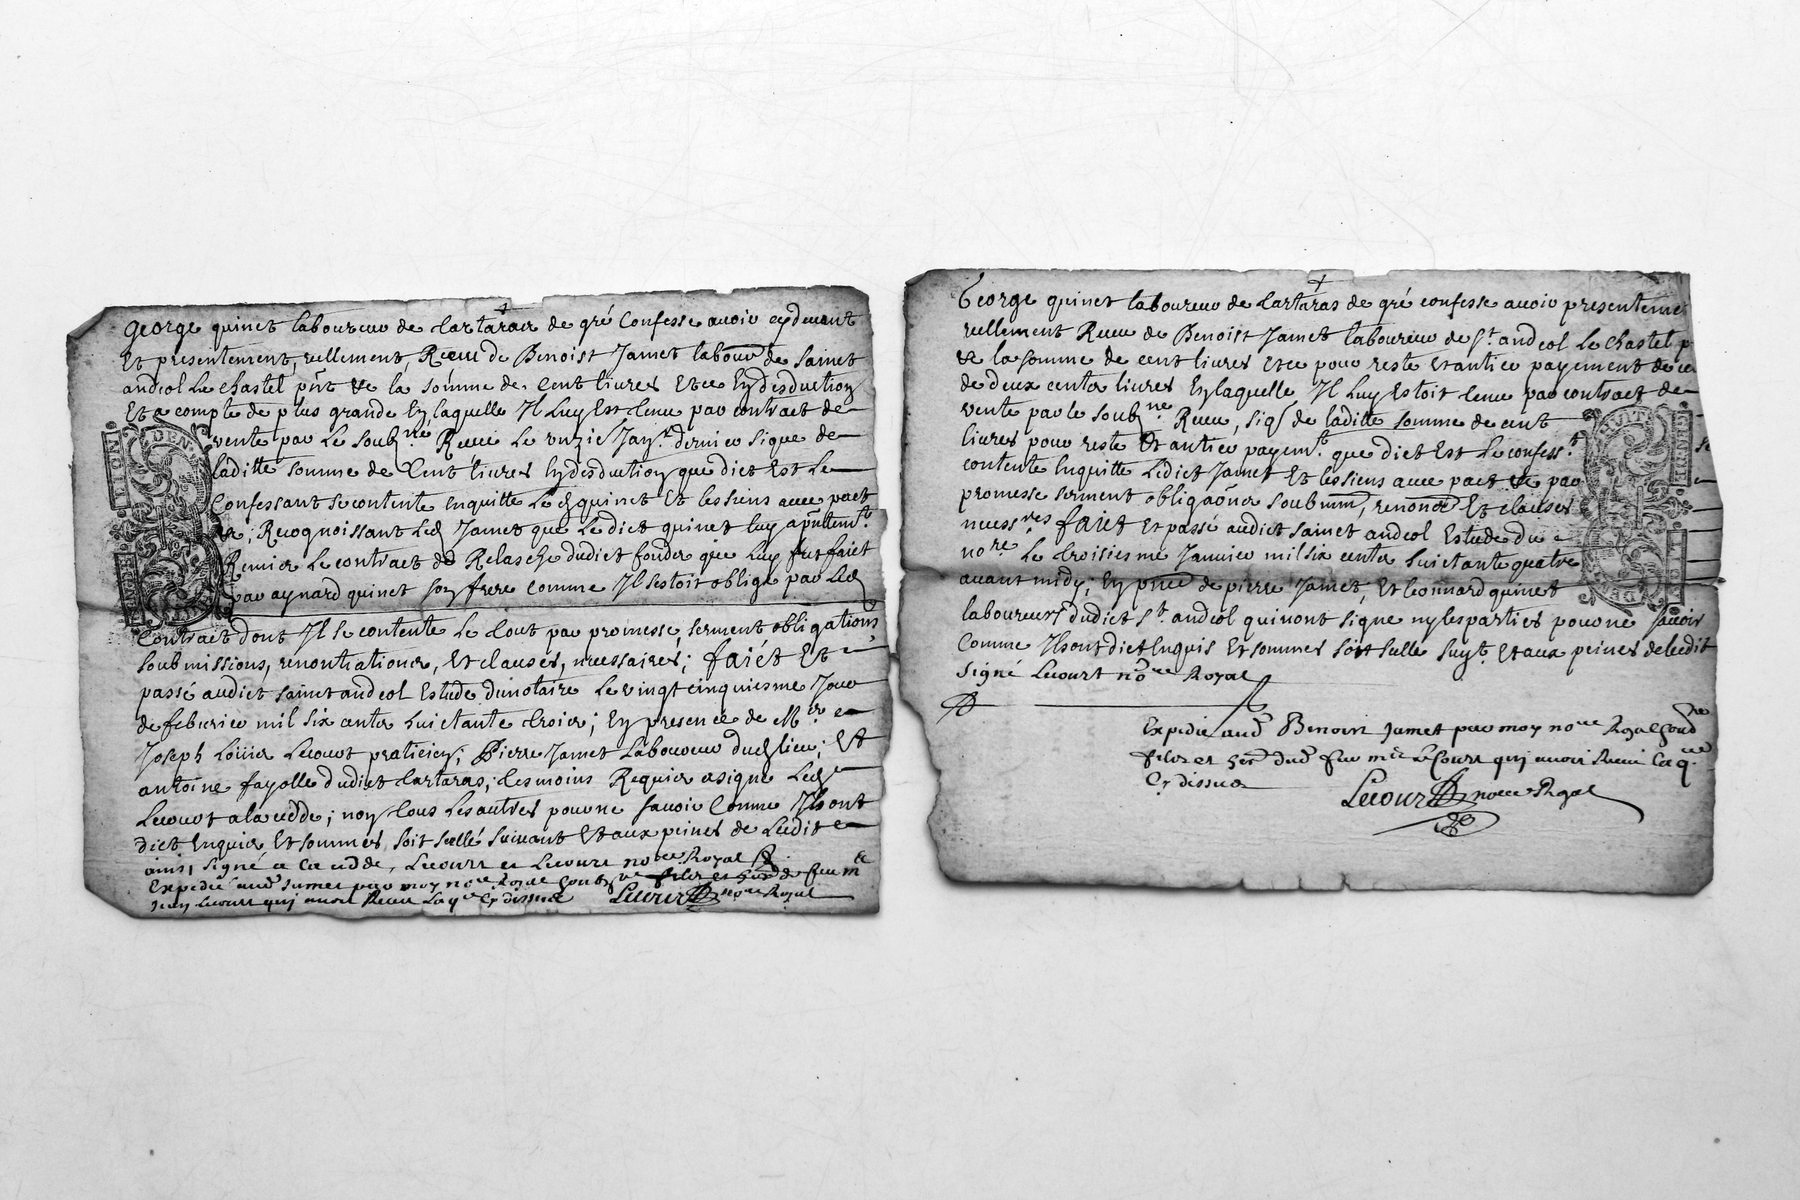 George quinet laboureur de Cartaras de gré Confesse avoir cydevant
Et presentement, reellement, Receu de Benoist Jamet labour de Sainct
andeol Le chastel pnt &c la somme de Cent livres Et ce En desduction
Et a compte de plus grande En laquelle Il Luy Est tenu par contract de
vente par Le soubné Receu Le unzie Janr dernier sique de
laditte somme de Cent livres En desduction que dict Est Le
Confessant se contente Enquitte Led quinet Et les siens avec pact
&c, Recognoissant Led Jamet que Ledict quinet luy a pntemt
Remier Le contract de Relasche dudict fonder que Luy fut faict
par aynard quinet son frere comme Il sestoit oblige par Led
Contract dont Il se contente Le tout par promesse, serment obligations,
soubmissions, renontiationer, Et clauses, necessaires; faict Et
passé audict sainct andeol Estude du notaire Le vingt cinquiesme Jour
de febvrier mil six centz soictante troier; En presence de Mr
Joseph Lecourt praticien; Pierre Jamet Laboureur dud lieu; Et
antoine fayolle dudict Cartaras; tesmoins Requier a signe Led
Lecourt a la cedde; non tous Les autres pour ne savoir Comme Ils ont
dict Enquier Et sommer soit scellé suivant Et aux peines de Ledit
ainsi signé a la cedde, Lecourt et Lecourt nore Royal
Expedié aud Jamet par moy nore Royal soubzne filz et herd de feu me
Jean Lecourt qui avoit Receu La qce Cy dissus Lecourt nore Royal
George quinet laboureur de Cartaras de gré confesse avoir presentemet
reellement Receu de Benoist Jamet laboureur de St andeol Le chastel p
&c la somme de cent livres Et ce pour reste Et antier payement de ce
de deux centz livres En laquelle Il Luy Estoit tenu par contract de
vente par le soubne Receu, siq de laditte somme de cent
livres pour reste Et antier payemt. que dict Est Le confesst
contente Enquitte Ledict Jamet Et les siens avec pact &c par
promesse serment obligaoner soubmm, renonce Et clauses
necessres faict Et passé audict sainct andeol Estude du
nore Le troisiesme Janvier mil six centz soictante quatre
avant midy, En pnce de pierre Jamet, Et leonnard quinet
laboureurs dudict St. andeol qui nont signe ny les parties pour ne savoir
Comme Ils ont dict Enquis Et sommes soit scelle suyt. Et aux peines de Ledit
signé Lecourt nore Royal
Expedie aud Benoist Jamet par moy nore Royal soubne
filz et herd dud feu me Le Court qui avoit Receu La qce
Cy dissus
Lecourt nore Royal